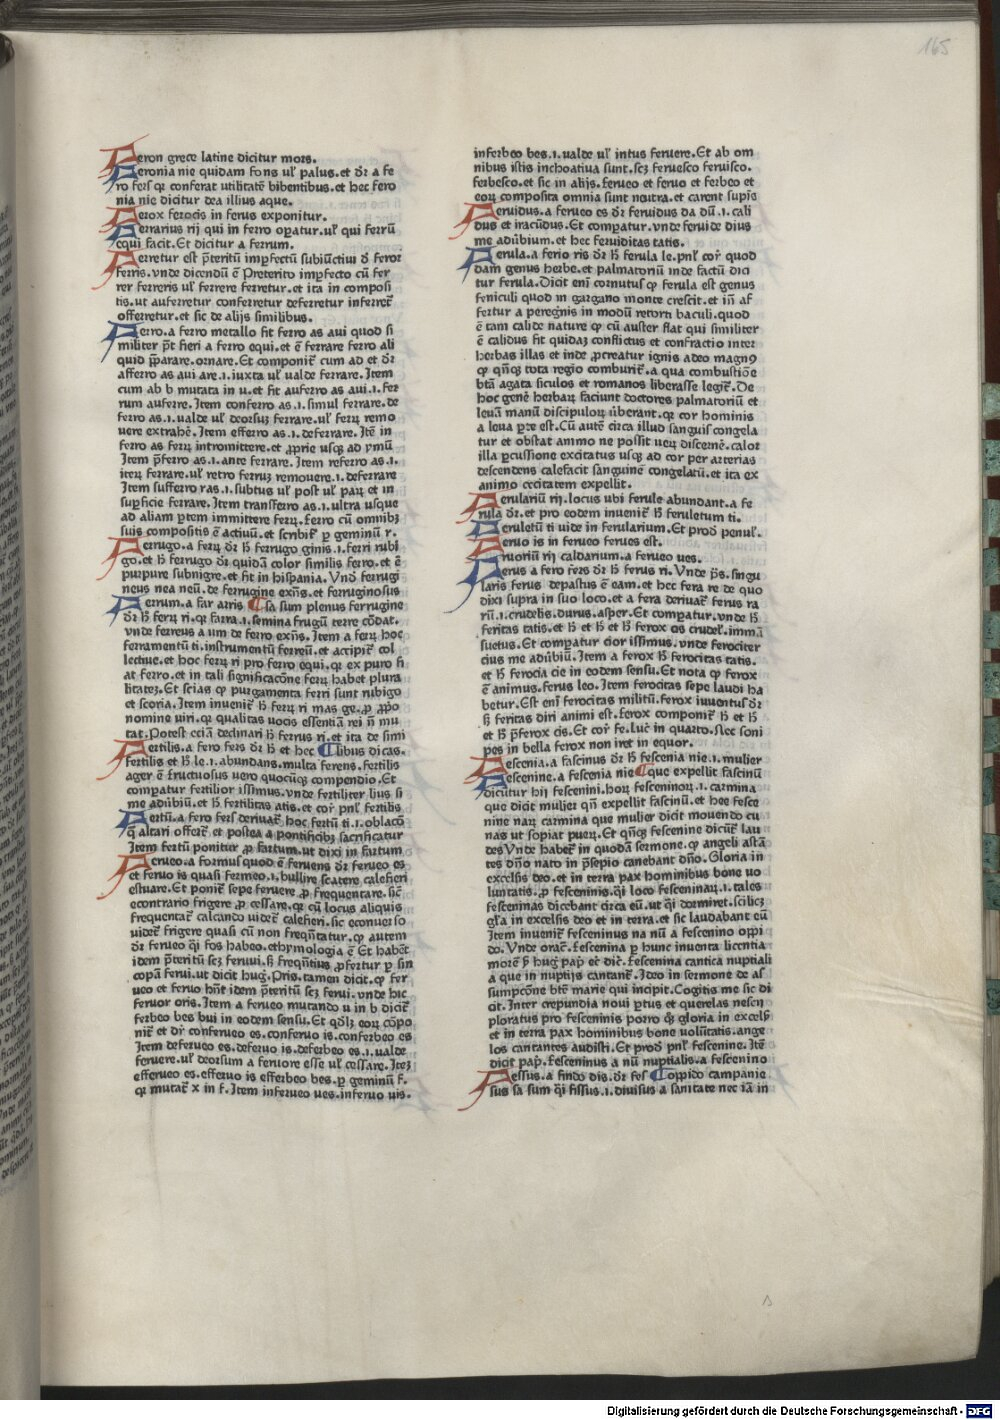 165
Feron grece latine dicitur mors.
Feronia nie quidam fons ul' palus.et dr̄ a fe
ro fers qr conferat utilitatē bibentibus.et hec fero
nia nie dicitur dea illius aque.
Ferox ferocis in ferus exponitur.
Ferrarius rij qui in ferro opatur.ul' qui ferrū
equi facit.Et dicitur a ferrum.
Ferretur est p̄teritū impfectū subiūctiui d' feror
ferris.vnde dicendū ē Preterito impfecto cū fer
rer ferreris ul' ferrere ferretur.et ita in composi
tis.ut auferretur conferretur deferretur inferret̄
offerretur.et sic de alijs similibus.
Ferro.a ferro metallo fit ferro as aui quod si
militer p̄t fieri a ferro equi.et ē ferrare ferro ali
quid p̄parare.ornare.Et componit̄ cum ad et dr̄
afferro as aui are.i.iuxta ul' ualde ferrare.Item
cum ab b mutata in u.et fit auferro as aui.i.fer
rum auferre.Item conferro as.i.simul ferrare.de
ferro as.i.ualde ul' deorsuȝ ferrare.ul' ferȝ remo
uere extrahē.Item efferro as.i.deferrare.Itē in
ferro as ferȝ intromittere.et p̄prie usqȝ ad ymū
Item p̄ferro as.i.ante ferrare.Item referro as.i.
iterȝ ferrare.ul' retro ferruȝ remouere.i.deferrare
Item sufferro ras.i.subtus ul' post ul' parȝ et in
supficie ferrare.Item transferro as.i.ultra usque
ad aliam ptem immittere ferȝ.ferro cū omnibȝ
suis compositis ē actiuū.et scribit̄ p geminū r.
Ferrugo.a ferȝ dr̄ h' ferrugo ginis.i.ferri rubi
go.et h' ferrugo dr̄ quidā color similis ferro.et ē
purpure subnigre.et fit in hispania.Vnd' ferrugi
neus nea neū.de ferrugine exn̄s.et ferruginosus
Ferrum.a far arris ¶sa sum plenus ferrugine
dr̄ h' ferȝ ri.qr farra.i.semina frugū terre cōdat.
vnde ferreus a um de ferro exn̄s.Item a ferȝ hoc
ferramentū ti.instrumentū ferreū.et accipit̄ col
lectiue.et hoc ferȝ ri pro ferro equi.qr ex puro fi
at ferro.et in tali significacōne ferȝ habet plura
litateȝ.Et scias qp purgamenta ferri sunt rubigo
et scoria.Item inuenit̄ h' ferȝ ri mas ge.p ppo
nomine uiri.qr qualitas uocis essentiā rei n̄ mu
tat.Potest eciā declinari h' ferrus ri.et ita de simi
Fertilis.a fero fers dr̄ h' et hec ¶libus dicas.
fertilis et h' le.i.abundans.multa ferens.fertilis
ager ē fructuosus uero quocūqȝ compendio.Et
compatur fertilior issimus.vnde fertiliter lius si
me adūbiū.et h' fertilitas atis.et cor̄ pnl' fertilis
Fertū.a fero fers deriuat̄ hoc fertū ti.i.oblacō
q̄ altari offert̄ et postea a pontificibȝ sacrificatur
Item fertū ponitur p fartum.ut dixi in fartum
Ferueo.a formus quod ē feruens dr̄ ferueo es
et feruo is quasi fermeo.i.bullire scatere calefieri
estuare.Et ponit̄ sepe feruere p frequentare.sic̄
econtrario frigere p cessare.qr cū locus aliquis
frequentat̄ calcando uidet̄ calefieri.sic econuerso
uidet̄ frigere quasi cū non freqn̄tatur.qp autem
dr̄ ferueo q̄i fos habeo.ethymologia ē Et habēt
idem p̄teritū scȝ ferui.s̄ freqn̄tius pfertur p sin
copā ferui.ut dicit hug.Pris.tamen dicit.qp fer
ueo et feruo hn̄t idem p̄teritū scȝ ferui.vnde hic
feruor oris.Item a ferueo mutando u in b dicit̄
ferbeo bes bui in eodem sensu.Et qdlȝ eorȝ cōpo
nit̄ et dr̄ conferueo es.conferuo is.conferbeo es
Item deferueo es.deferuo is.deferbeo es.i.ualde
feruere.ul' deorsum a feruore esse ul' cessare.Iteȝ
efferueo es.efferuo is efferbeo bes.p geminū f.
qr mutat̄ x in f.Item inferueo ues.inferuo uis.
inferbeo bes.i.ualde ul' intus feruere.Et ab om
nibus istis inchoatiua sunt.scȝ feruesco feruisco.
ferbesco.et sic in alijs.ferueo et feruo et ferbeo et
eorȝ composita omnia sunt neutra.et carent supis
Feruidus.a ferueo es dr̄ feruidus da dū.i.cali
dus et iracūdus.Et compatur.vnde feruide dius
me adūbium.et hec feruiditas tatis.
Ferula.a ferio ris dr̄ h' ferula le.pnl' cor̄ quod
dam genus herbe.et palmatoriū inde factū dici
tur ferula.Dicit eni cornutus qp ferula est genus
feniculi quod in gargano monte crescit.et in̄ af
fertur a peregnis in modū retorti baculi.quod
ē tam calide nature qp cū auster flat qui similiter
ē calidus fit quidaȝ conflictus et confractio inter
herbas illas et inde pcreatur ignis adeo magn9
qp qn̄qȝ tota regio comburit̄.a qua combustiōe
btā agata siculos et romanos liberasse legit̄.De
hoc genē herbarȝ faciunt doctores palmatoriū et
leuā manū discipulorȝ ūberant.qr cor hominis
a leua pte est.Cū autē circa illud sanguis congela
tur et obstat animo ne possit uerȝ discernē.calor
illa pcussione excitatus usqȝ ad cor per arterias
descendens calefacit sanguinē congelatū.et ita ex
animo cecitatem expellit.
Ferulariū rij.locus ubi ferule abundant.a fe
rula dr̄.et pro eodem inuenit̄ h' feruletum ti.
Feruletū ti uide in ferularium.Et prod' penul'.
Feruo is in ferueo ferues est.
Fruoriū rij caldarium.a ferueo ues.
Ferus a fero fers dr̄ h' ferus ri.Vnde ps.singu
laris ferus depastus ē eam.et hec fera re de quo
dixi supra in suo loco.et a fera deriuat̄ ferus ra
rū.i.crudelis.durus.asper.Et compatur.vnde h'
feritas tatis.et h' et h' et h' ferox cis crudel'.immā
suetus.Et compatur cior issimus.vnde ferociter
cius me adūbiū.Item a ferox h' ferocitas tatis.
et h' ferocia cie in eodem sensu.Et nota qp ferox
ē animus.ferus leo.Item ferocitas sepe laudi ha
betur.Est eni ferocitas militū.ferox iuuentus dr̄
s̄ feritas diri animi est.ferox componit̄ h' et h'
et h' p̄ferox cis.Et cor̄ fe.luc̄ in quarto.Nec soni
pes in bella ferox non iret in equor.
Fescenia.a fascinus dr̄ h' fescenia nie.i.mulier
Fescenine.a fescenia nie ¶que expellit fascinū
dicūtur hij fescenini.horȝ fesceninorȝ.i.carmina
que dicit mulier qn̄ expellit fascinū.et hee fesce
nine narȝ carmina que mulier dicit mouendo cu
nas ut sopiat puerȝ.Et qn̄qȝ fescenine dicūt̄ lau
des Vnde habet̄ in quodā sermone.qp angeli astā
tes dn̄o nato in p̄sepio canebant dn̄o.Gloria in
excelsis deo.et in terra pax hominibus bone uo
luntatis.p fesceninis.q̄i loco fesceninarȝ.i.tales
fesceninas dicebant circa eū.ut q̄i dormiret.scilicȝ
gl'a in excelsis deo et in terra.et sic laudabant eū
Item inuenit̄ fesceninus na nū a fescenino oppi
do.Vnde orac̄.fescenina p hunc inuenta licentia
morē s̄ hug' pap' et dic̄.fescenina cantica nuptiali
a que in nuptijs cantant̄.Ideo in sermone de as
sumpcōne btē marie qui incipit.Cogitis me sic di
cit.Inter crepundia noui ptus et querelas nescij
ploratus pro fesceninis porro qȝ gloria in excels'
et in terra pax hominibus bone volūtatis.ange
los cantantes audisti.Et prod' pnl' fescenine.Itē
dicit pap'.fesceninus a nū nuptialis.a fescenino
Fessus.a findo dis.dr̄ fes ¶oppido campanie
sus sa sum q̄i fissus.i.diuisus a sanitate nec iā in
Digitalisierung gefördert durch die Deutsche Forschungsgemeinschaft - DFG